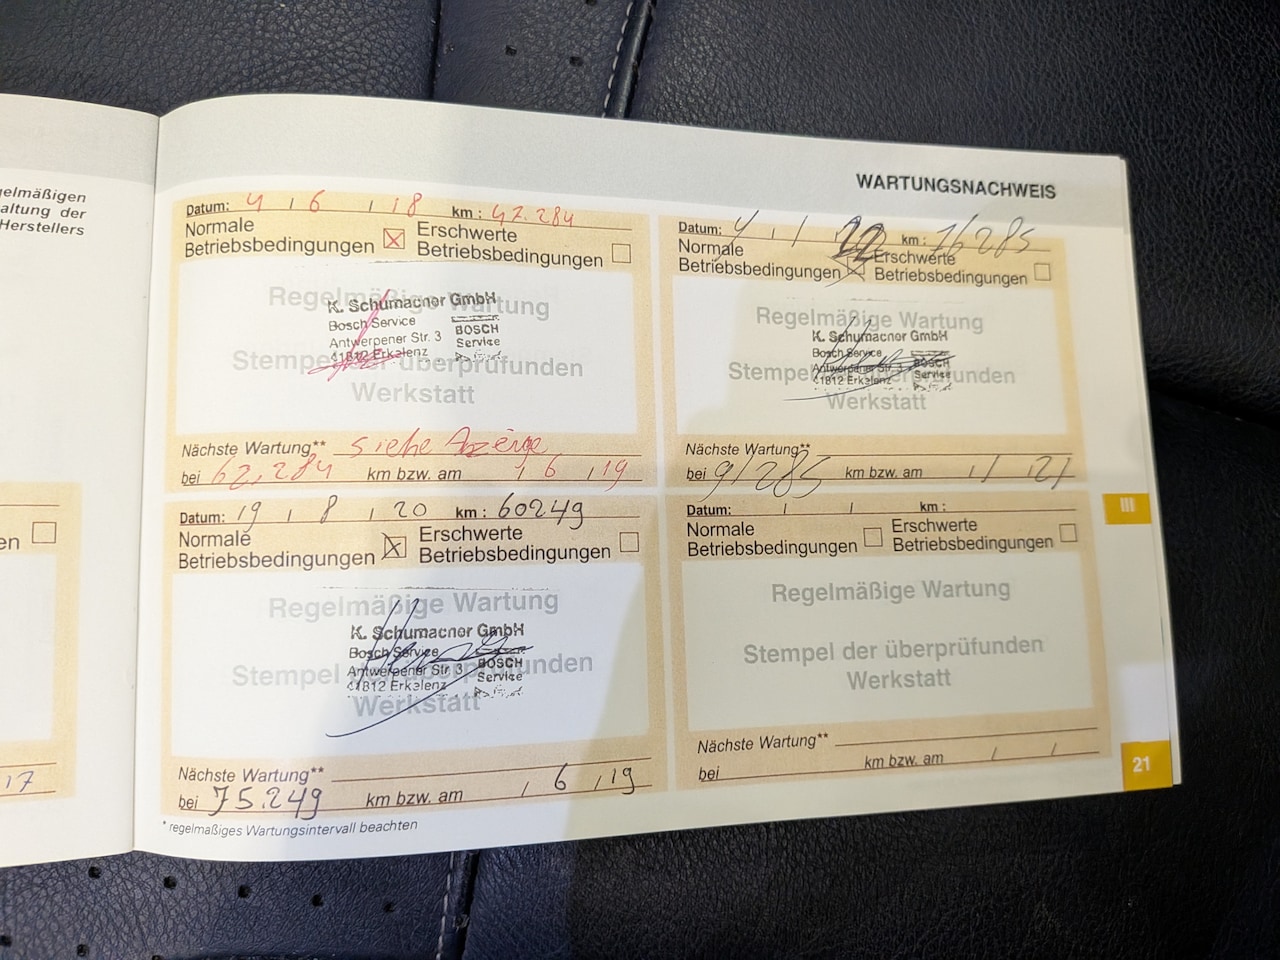 gelmäßigen
altung der
Herstellers
en
17
WARTUNGSNACHWEIS
Datum: 4 / 6 / 18 km: 47.284
Normale
Betriebsbedingungen
Erschwerte
Betriebsbedingungen
Regelmäßige Wartung
Stempel der überprüfunden
Werkstatt
K. Schumacher GmbH
Bosch Service
Antwerpener Str. 3
41812 Erkelenz
BOSCH
Service
Nächste Wartung** siehe Anzeige
bei 62.284 km bzw. am / 6 / 19
Datum: 19 / 8 / 20 km: 60249
Normale
Betriebsbedingungen
Erschwerte
Betriebsbedingungen
Regelmäßige Wartung
Stempel der überprüfunden
Werkstatt
K. Schumacher GmbH
Bosch Service
Antwerpener Str. 3
41812 Erkelenz
BOSCH
Service
Nächste Wartung**
bei 75.249 km bzw. am / 6 / 19
* regelmäßiges Wartungsintervall beachten
Datum: 4 / 1 / 22 km: 76285
Normale
Betriebsbedingungen
Erschwerte
Betriebsbedingungen
Regelmäßige Wartung
Stempel der überprüfunden
Werkstatt
K. Schumacher GmbH
Bosch Service
Antwerpener Str. 3
41812 Erkelenz
BOSCH
Service
Nächste Wartung**
bei 91285 km bzw. am
Datum: / / km:
Normale
Betriebsbedingungen
Erschwerte
Betriebsbedingungen
Regelmäßige Wartung
Stempel der überprüfunden
Werkstatt
Nächste Wartung**
bei km bzw. am / /
III
21